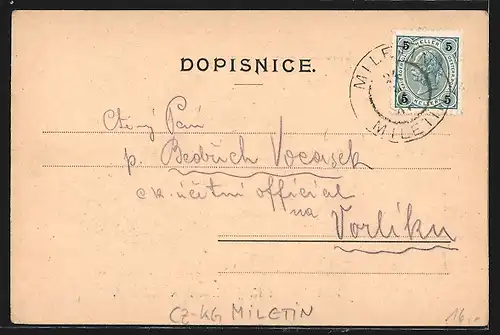 DOPISNICE.
5 HELLER 5
5 HELLER 5
MILETIN
MILETI
Ctěný Pán
p. Bedřich Vocásek
c.k. účetní official
na
Vorlíku
CZ-KG MILETIN
16